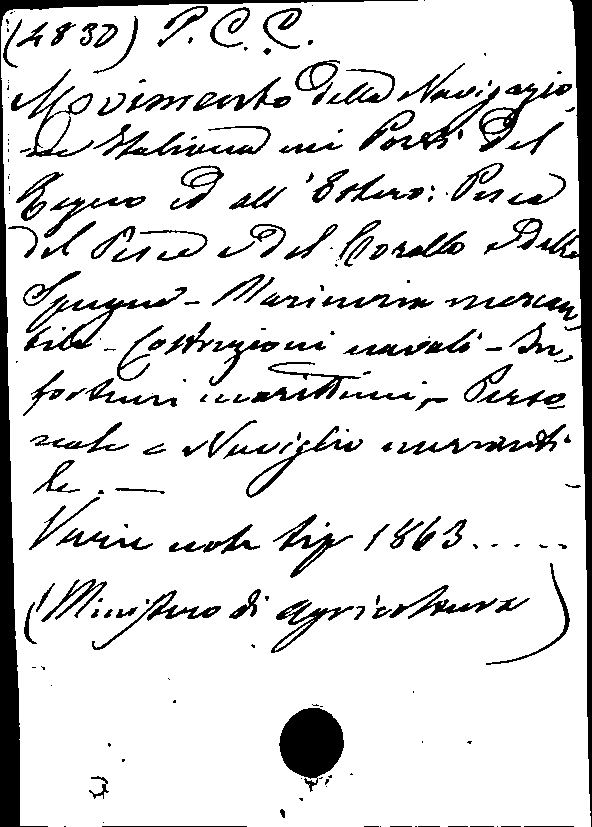 (4830) P. C. C.
Movimento della Navigazio
ne Italiana nei Porti del
Regno ed all'Estero: Pesca
del Pesce e del Corallo e delle
Spugne - Marineria mercan
tile - Costruzioni navali - In,
fortuni marittimi, - Perso
nale e Naviglio mercanti
le. —
Varie note tip 1863.....
(Ministero di agricoltura)